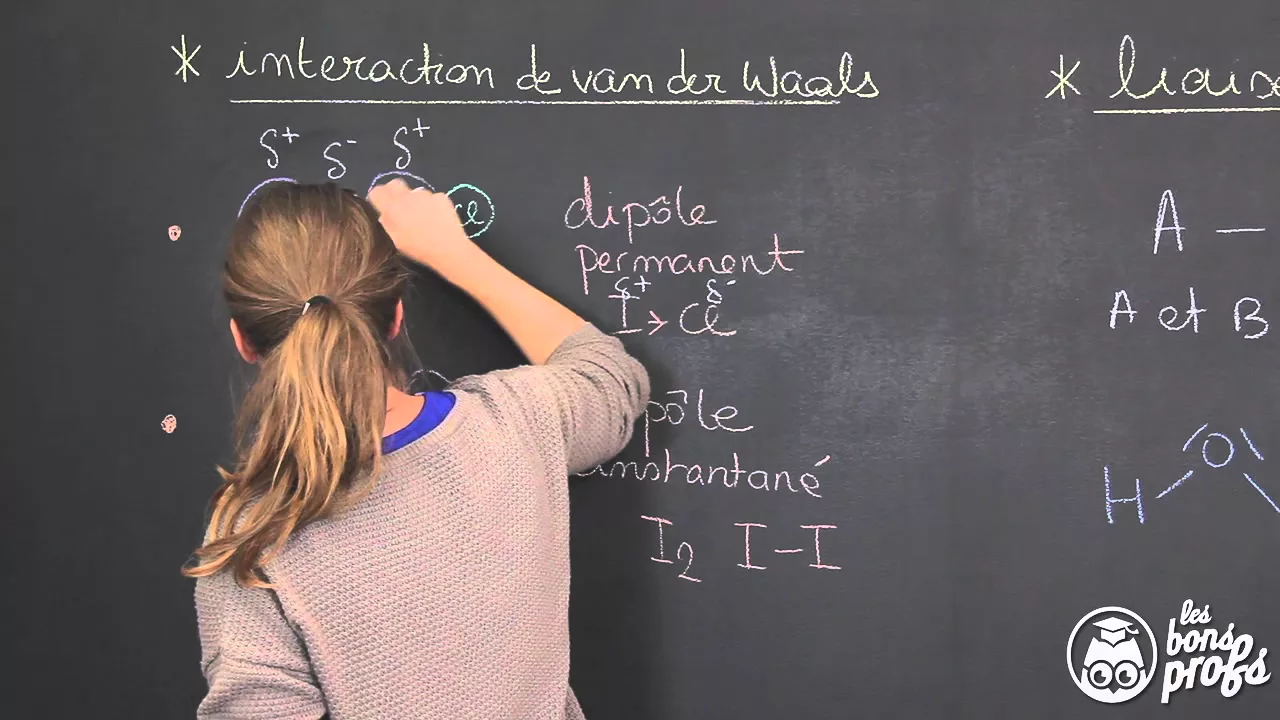 * interaction de van der Waals
δ+ δ- δ+
Cl
dipôle
permanent
δ+ δ-
I > Cl
pôle
instantané
I2 I-I
* liais
A —
A et B
O
H
les
bons
profs